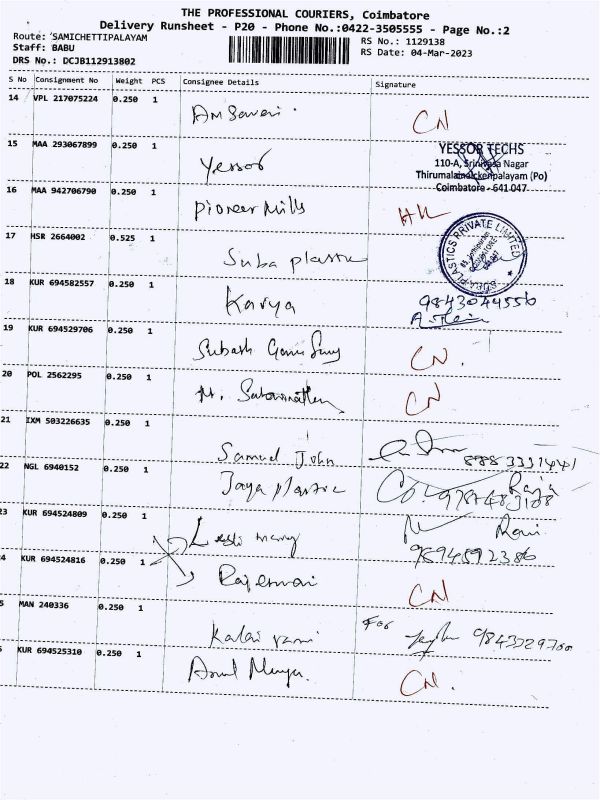 THE PROFESSIONAL COURIERS, Coimbatore
Delivery Runsheet - P20 - Phone No.:0422-3505555 - Page No.:2
Route: SAMICHETTIPALAYAM
RS No.: 1129138
Staff: BABU
RS Date: 04-Mar-2023
DRS No.: DCJB112913802
S No Consignment No Weight PCS Consignee Details Signature
14 VPL 217075224 0.250 1
CN
15 MAA 293067899 0.250 1 Yessor
YESSOR TECHS
110-A, Srinivasa Nagar
Thirumalainaickenpalayam (Po)
Coimbatore - 641 047
16 MAA 942706790 0.250 1 Pioneer Mills
17 HSR 2664002 0.525 1 Suba plastic
SUBA-PLASTICS PRIVATE LIMITED
18 KUR 694582557 0.250 1 Kavya 9843044556
19 KUR 694529706 0.250 1 Subash
CN.
20 POL 2562295 0.250 1
CN
21 IXM 503226635 0.250 1 Samuel John
22 NGL 6940152 0.250 1 Jaya plastic
Raja
23 KUR 694524809 0.250 1
Ravi
9894592386
4 KUR 694524816 0.250 1 Rajeswari
CN
5 MAN 240336 0.250 1 Kalai vani
For
9843329700
KUR 694525310 0.250 1
CN.